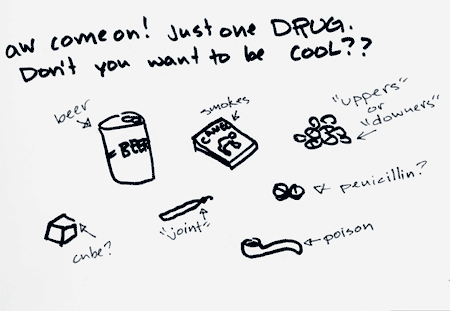 aw come on! Just one DRUG.
Don't you want to be COOL??
beer
BEER
smokes
CAMEL
"uppers"
or
"downers"
penicillin?
cube?
"joint"
poison